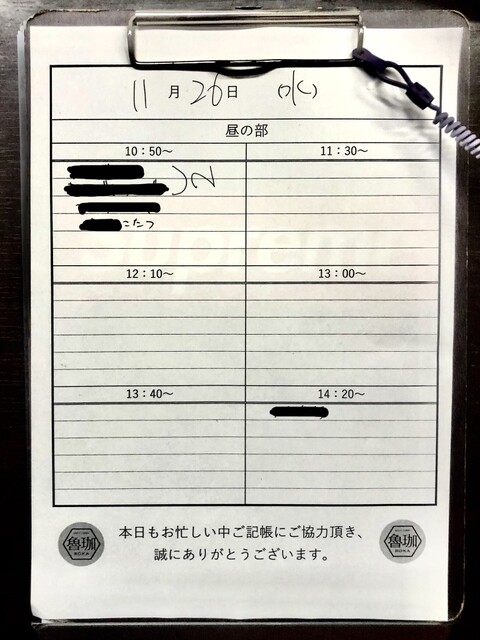 11月26日 (水)
昼の部
10：50～
11：30～
2
こたつ
12：10～
13：00～
13：40～
14：20～
本日もお忙しい中ご記帳にご協力頂き、
誠にありがとうございます。
魯珈
ROKA
魯珈
ROKA